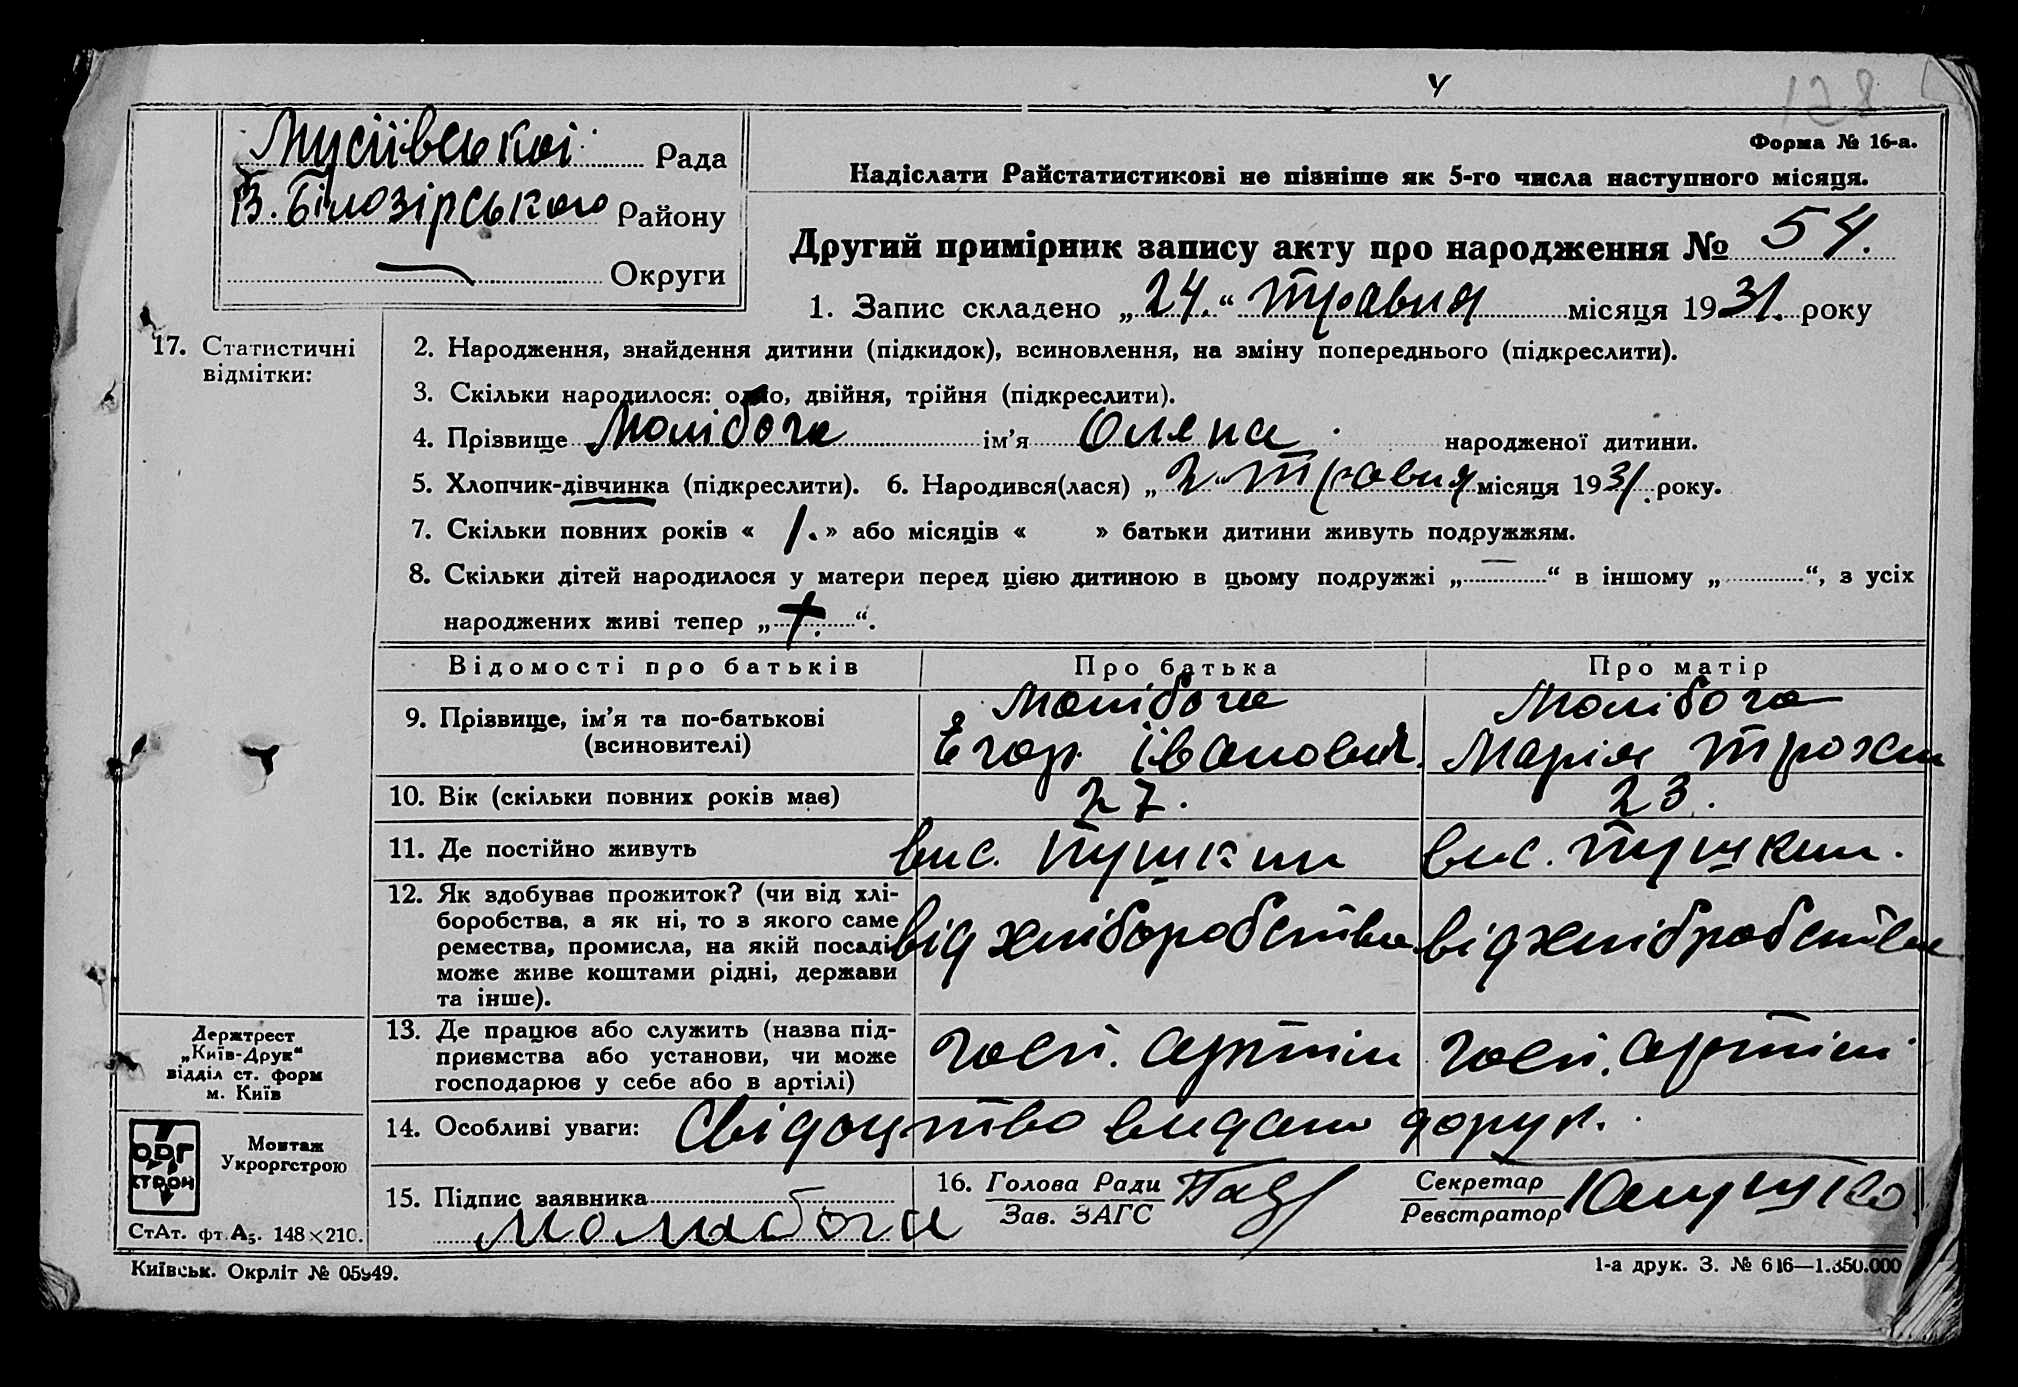 4
128
Форма № 16-а.
Мусіївської Рада
В. Білозірського Району
Округи
Надіслати Райстатистикові не пізніше як 5-го числа наступного місяця.
Другий примірник запису акту про народження № 54.
1. Запис складено „24.“ травня місяця 1931. року
17. Статистичні
відмітки:
2. Народження, знайдення дитини (підкидок), всиновлення, на зміну попереднього (підкреслити).
3. Скільки народилося: одно, двійня, трійня (підкреслити).
4. Прізвище Молібога ім’я Олена народженої дитини.
5. Хлопчик-дівчинка (підкреслити). 6. Народився(лася) „2“ травня місяця 1931. року.
7. Скільки повних років « 1. » або місяців « » батьки дитини живуть подружжям.
8. Скільки дітей народилося у матери перед цією дитиною в цьому подружжі „—“ в іншому „ “, з усіх
народжених живі тепер „ “.
Відомості про батьків Про батька Про матір
9. Прізвище, ім’я та по-батькові
(всиновителі)
Молібога
Єгор Іванович.
Молібога
Марія Трохим
10. Вік (скільки повних років має) 27. 23.
11. Де постійно живуть вис. Пушкин вис. Пушкин.
12. Як здобуває прожиток? (чи від хлі-
боробства, а як ні, то з якого саме
ремества, промисла, на якій посаді
може живе коштами рідні, держави
та інше).
від хліборобства від хлібробства
13. Де працює або служить (назва під-
приємства або установи, чи може
господарює у себе або в артілі)
госп. артіли госп. артіли
14. Особливі уваги: Свідоцтво видано доруч.
15. Підпис заявника
Молибога
16. Голова Ради
Зав. ЗАГС
Секретар
Реєстратор
Держтрест
„Київ-Друк“
відділ ст. форм
м. Київ
ОРГ
СТРОЙ
Монтаж
Укроргстрою
СтАт. фт. А5. 148×210.
Київськ. Окрліт № 05949.
1-а друк. З. № 616—1.350.000